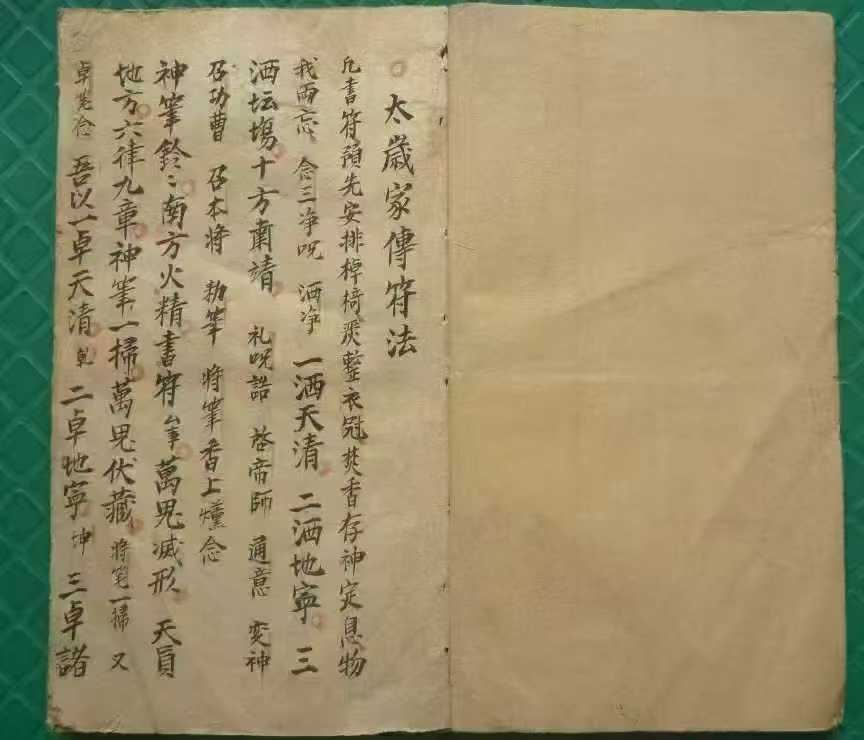 太歲家傳符法
凡書符預先安排棹椅畢整衣冠焚香存神定息物
我両忘 念三净呪 洒净 一洒天清 二洒地寧 三
洒坛塲十方肅靖 礼呪誥 啓帝師 通意 变神
召功曹 召本将 勑筆 将筆香上燻念
神筆鈴〻南方火精書符 萬鬼滅形 天員
地方六律九章神筆一掃萬鬼伏藏 将筆一掃 又
卓筅念 吾以一卓天清 乹 二卓地寧 坤 三卓諸